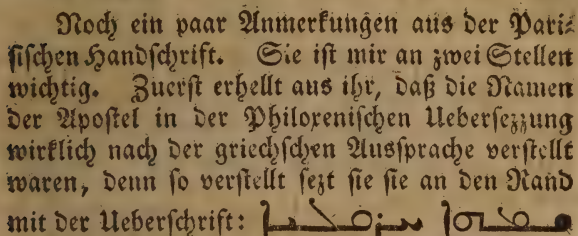 Noch ein paar Anmerkungen aus der Pari-
sischen Handschrift. Sie ist mir an zwei Stellen
wichtig. Zuerst erhellt aus ihr, daß die Namen
der Apostel in der Philoxenischen Uebersezzung
wirklich nach der griechschen Aussprache verstellt
waren, denn so verstellt sezt sie sie an den Rand
mit der Ueberschrift: